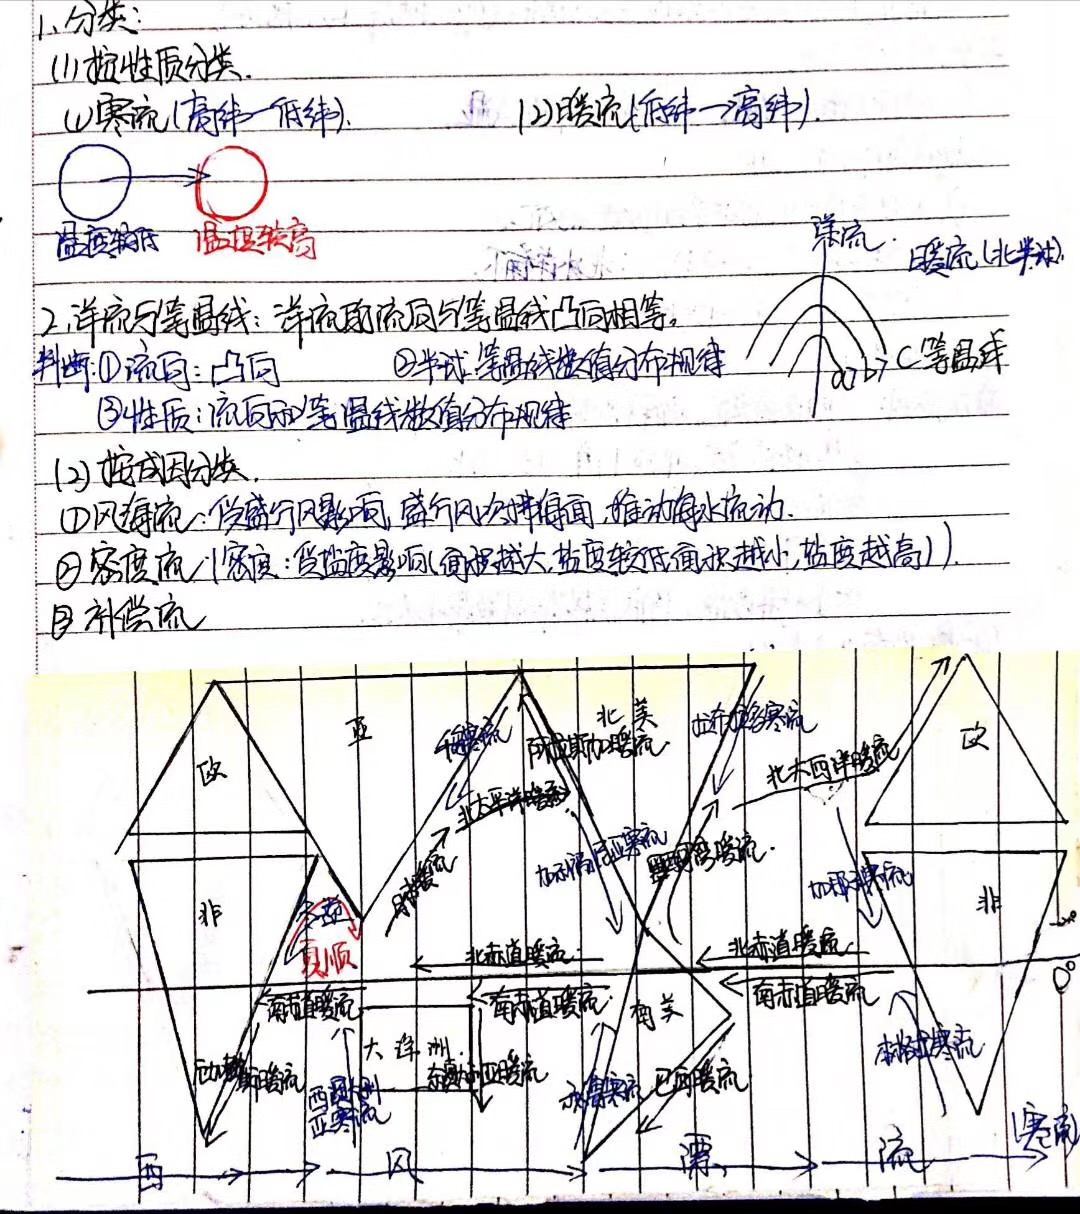 1、分类:
(1)按性质分类.
(1)寒流(高纬→低纬). (2)暖流(低纬→高纬).
温度较低 温度较高
洋流
暖流(北半球).
2、洋流与等温线:洋流的流向与等温线凸向相等。
判断:①流向:凸向 ②半球:等温线数值分布规律
a>b>c 等温线
③性质:流向和等温线数值分布规律
(2)按成因分类.
①风海流:受盛行风影响,盛行风吹拂海面,推动海水流动.
②密度流(密度:受盐度影响(面积越大,盐度较低面积越小,盐度越高)).
③补偿流
欧 亚 北美 欧
千岛寒流 阿拉斯加暖流 拉布拉多寒流
北太平洋暖流 北大西洋暖流
日本暖流 加利福尼亚寒流 墨西哥湾暖流 加那利寒流
非 冬逆 非
夏顺
北赤道暖流 北赤道暖流
0°
南赤道暖流 南赤道暖流 南美 南赤道暖流
大洋洲 东澳大利亚暖流 本格拉寒流
西澳大利亚寒流 秘鲁寒流 巴西暖流
西 风 漂 流 (寒流)